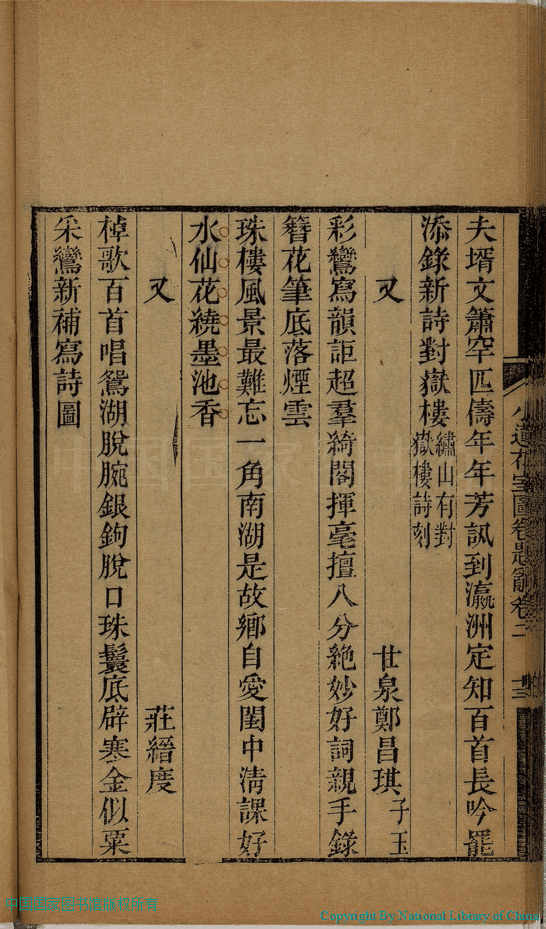 夫壻文簫罕匹儔年年芳訊到瀛洲定知百首長吟罷
添錄新詩對嶽樓繡山有對嶽樓詩刻
又 甘泉鄭昌琪子玉
彩鸞寫韻詎超羣綺閣揮毫擅八分絕妙好詞親手錄
簪花筆底落煙雲
珠樓風景最難忘一角南湖是故鄉自愛閨中淸課好
水仙花繞墨池香
又 莊縉度
棹歌百首唱鴛湖脫腕銀鉤脫口珠鬟底辟寒金似粟
采鸞新補寫詩圖
Copyright By National Library of China